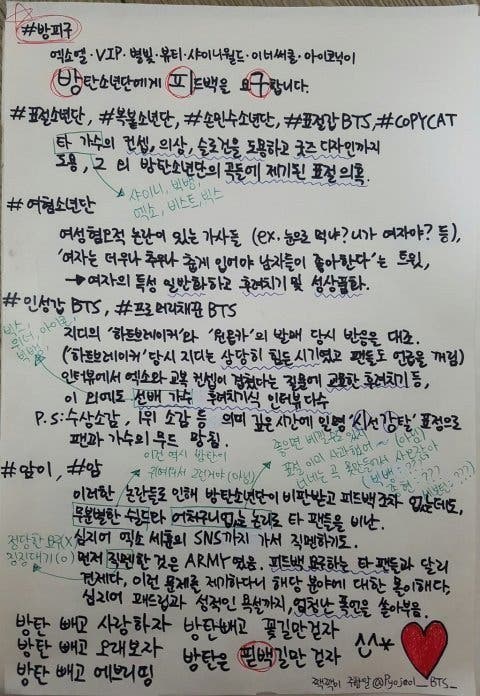 #방피구
엑소엘·VIP·별빛·뷰티·샤이니월드·이너써클·아이코닉이
방탄소년단에게 피드백을 요구합니다.
#표절소년단, #복붙소년단, #손민수소년단, #표절갑BTS, #COPYCAT
타 가수의 컨셉, 의상, 슬로건을 도용하고 굿즈 디자인까지
도용, 그 외 방탄소년단의 곡들에 제기된 표절 의혹.
샤이니, 빅뱅,
엑소, 비스트, 빅스
#여혐소년단
여성혐오적 논란이 있는 가사들 (ex. 눈으로 먹냐? 니가 여자야? 등),
'여자는 더우나 추우나 춥게 입어야 남자들이 좋아한다'는 트윗,
→ 여자의 특성 일반화하고 후려치기 및 성상품화.
#인성갑BTS, #프로려치콘BTS
빅스,
위너, 아이콘,
빅뱅
지디의 '하트브레이커'와 '원오카'의 발매 당시 반응을 대조.
(하트브레이커' 당시 지디는 상당히 힘든 시기였고 팬들도 언급을 꺼림)
인터뷰에서 엑소와 교복 컨셉이 겹친다는 질문에 교묘한 후려치기 등,
이 외에도 선배 가수 후려치기식 인터뷰 다수
P.S: 수상소감, 1위 소감 등 의미 깊은 시간에 일명 '시선강탈' 표정으로
팬과 가수의 무드 망침.
이건 역시 방탄이
귀여워서 그런거야 (아님)
좋으면 베낄수도 있지
표절 이미 사과했어~ (아님)
너네는 곡
(빅뱅: ???)
???)
???)
#앞이, #앞
이러한 논란들로 인해 방탄소년단이 비판받고 피드백 조차 없는데도,
무분별한 쉴드와 어처구니없는 논리로 타 팬들을 비난.
심지어 엑소 세훈의 SNS까지 가서 직멘하기도.
정당한 요구(X)
징징대기(O)
먼저 직멘한 것은 ARMY였음. 피드백 요구하는 타 팬들과 달리
견제다, 이런 문제를 제기하다니 해당 분야에 대한 몰이해다,
심지어 패드립과 성적인 욕설까지, 엄청난 폭언을 쏟아부음.
방탄 빼고 사랑하자 방탄빼고 꽃길만걷자
방탄 빼고 오래보자 방탄은 핀백길만 걷자
방탄 빼고 에브리띵
잭잭이 주합탈@Pyojeol_BTS_